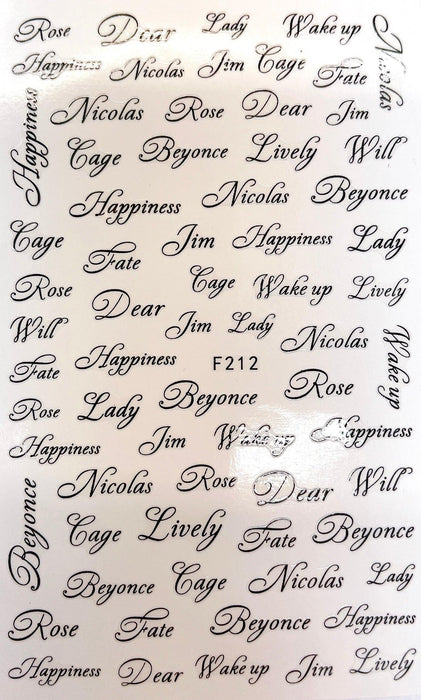 Rose Dear Lady Wake up
Happiness Nicolas Jim Cage Fate Nicolas
Happiness Nicolas Rose Dear Jim
Cage Beyonce Lively Will
Happiness Nicolas Beyonce
Cage Fate Jim Happiness Lady
Rose Dear Cage Wake up Lively
Will Jim Lady Nicolas Wake up
Fate Happiness F212 Rose
Rose Lady Beyonce
Happiness Jim Wake up Happiness
Beyonce Nicolas Rose Dear Will
Cage Lively Fate Beyonce
Beyonce Cage Nicolas Lady
Rose Fate Beyonce Happiness
Happiness Dear Wake up Jim Lively